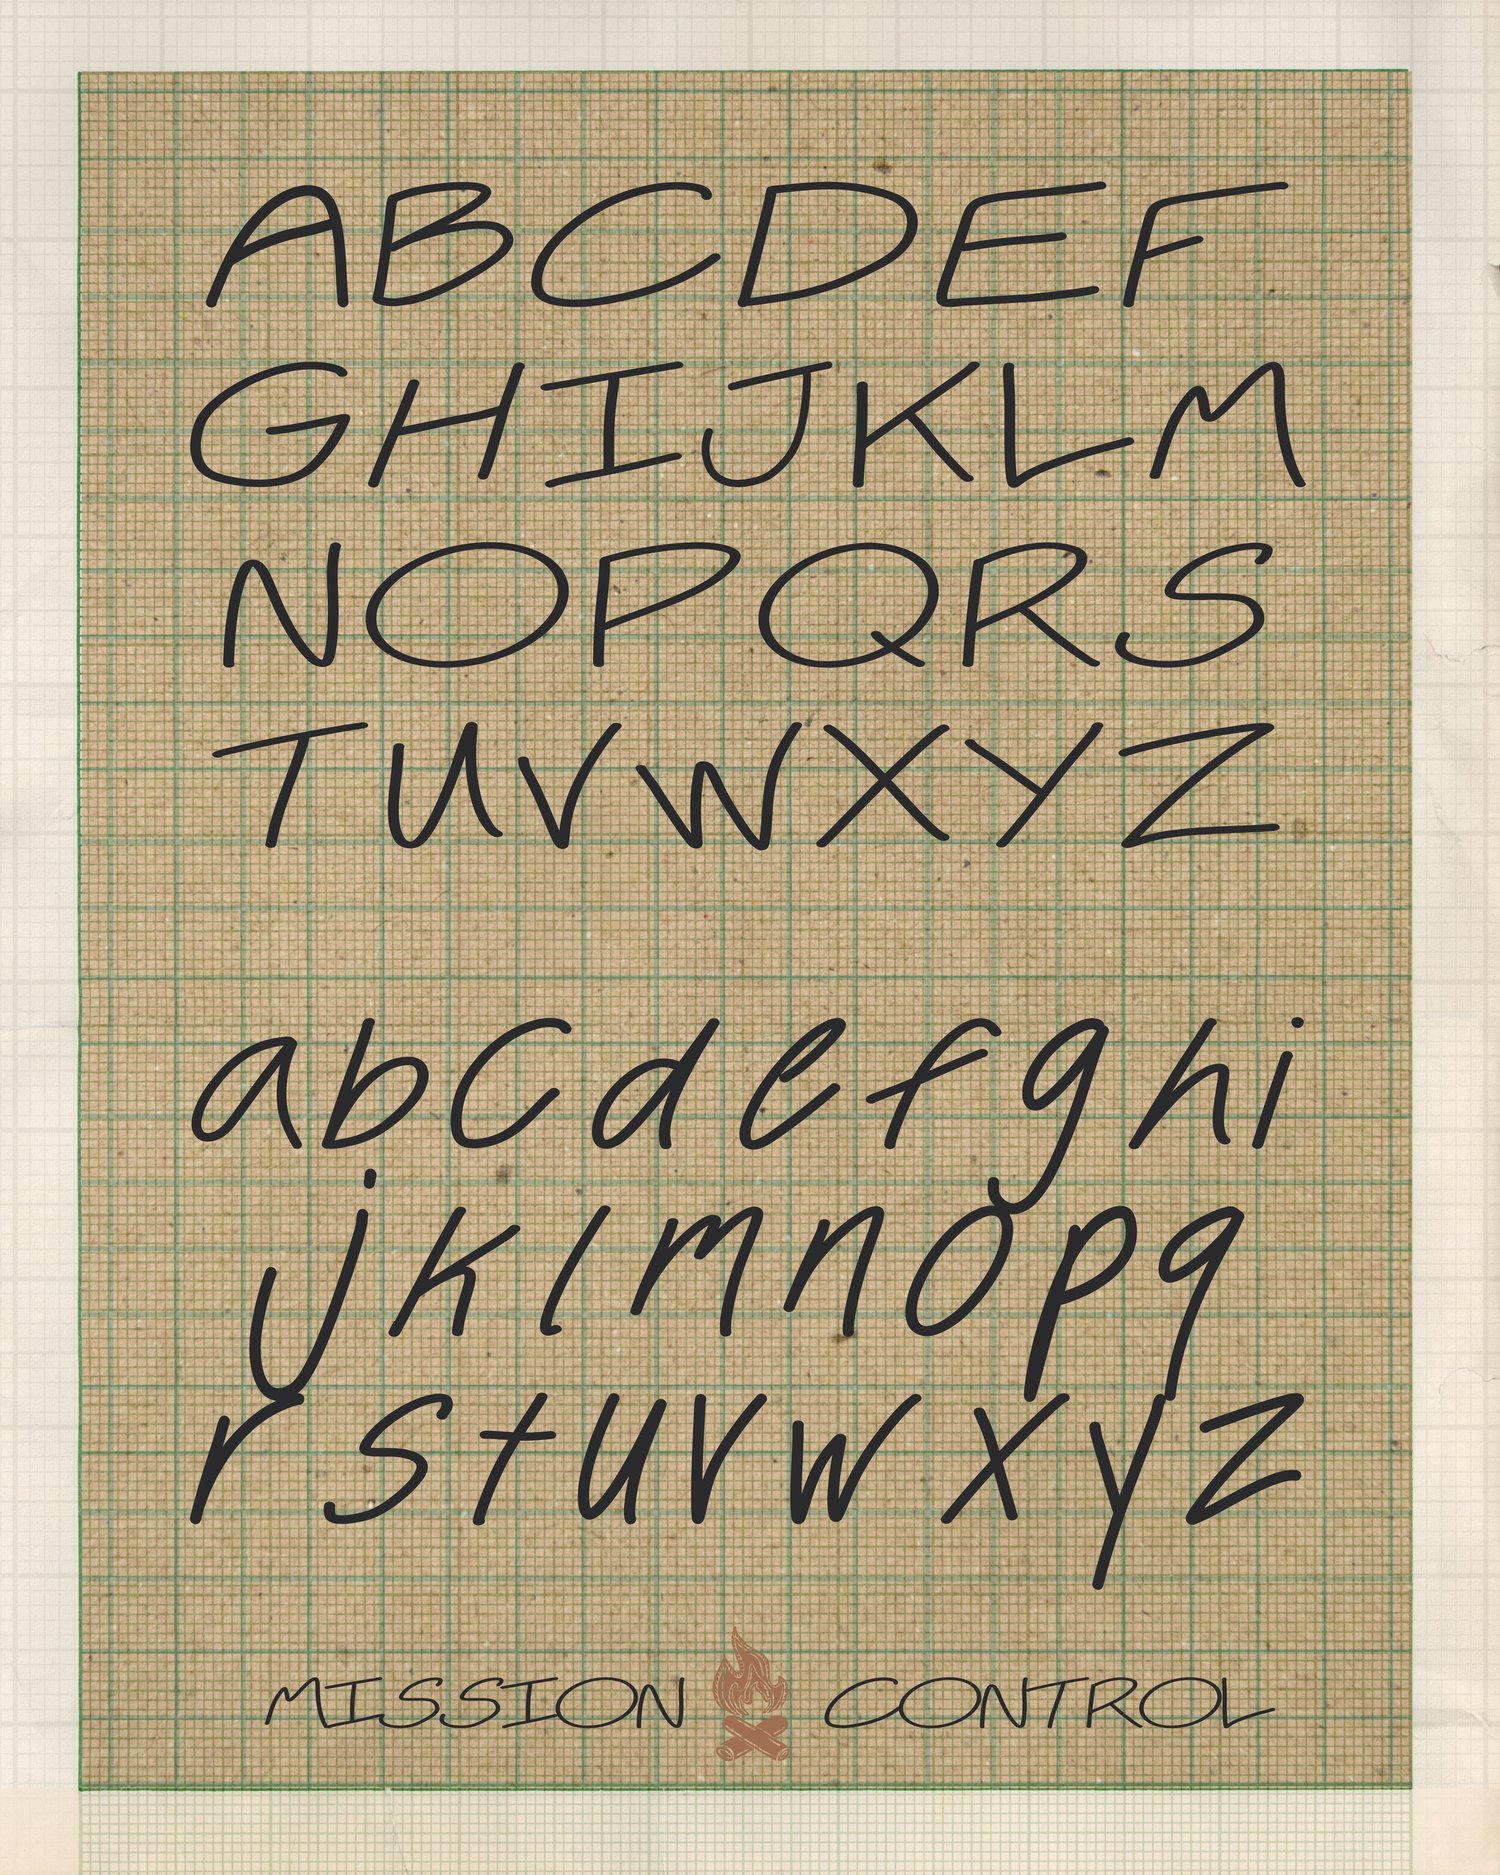 ABCDEF
GHIJKLM
NOPQRS
TUVWXYZ
abcdefghi
jklmnopq
rstuvwxyz
MISSION CONTROL